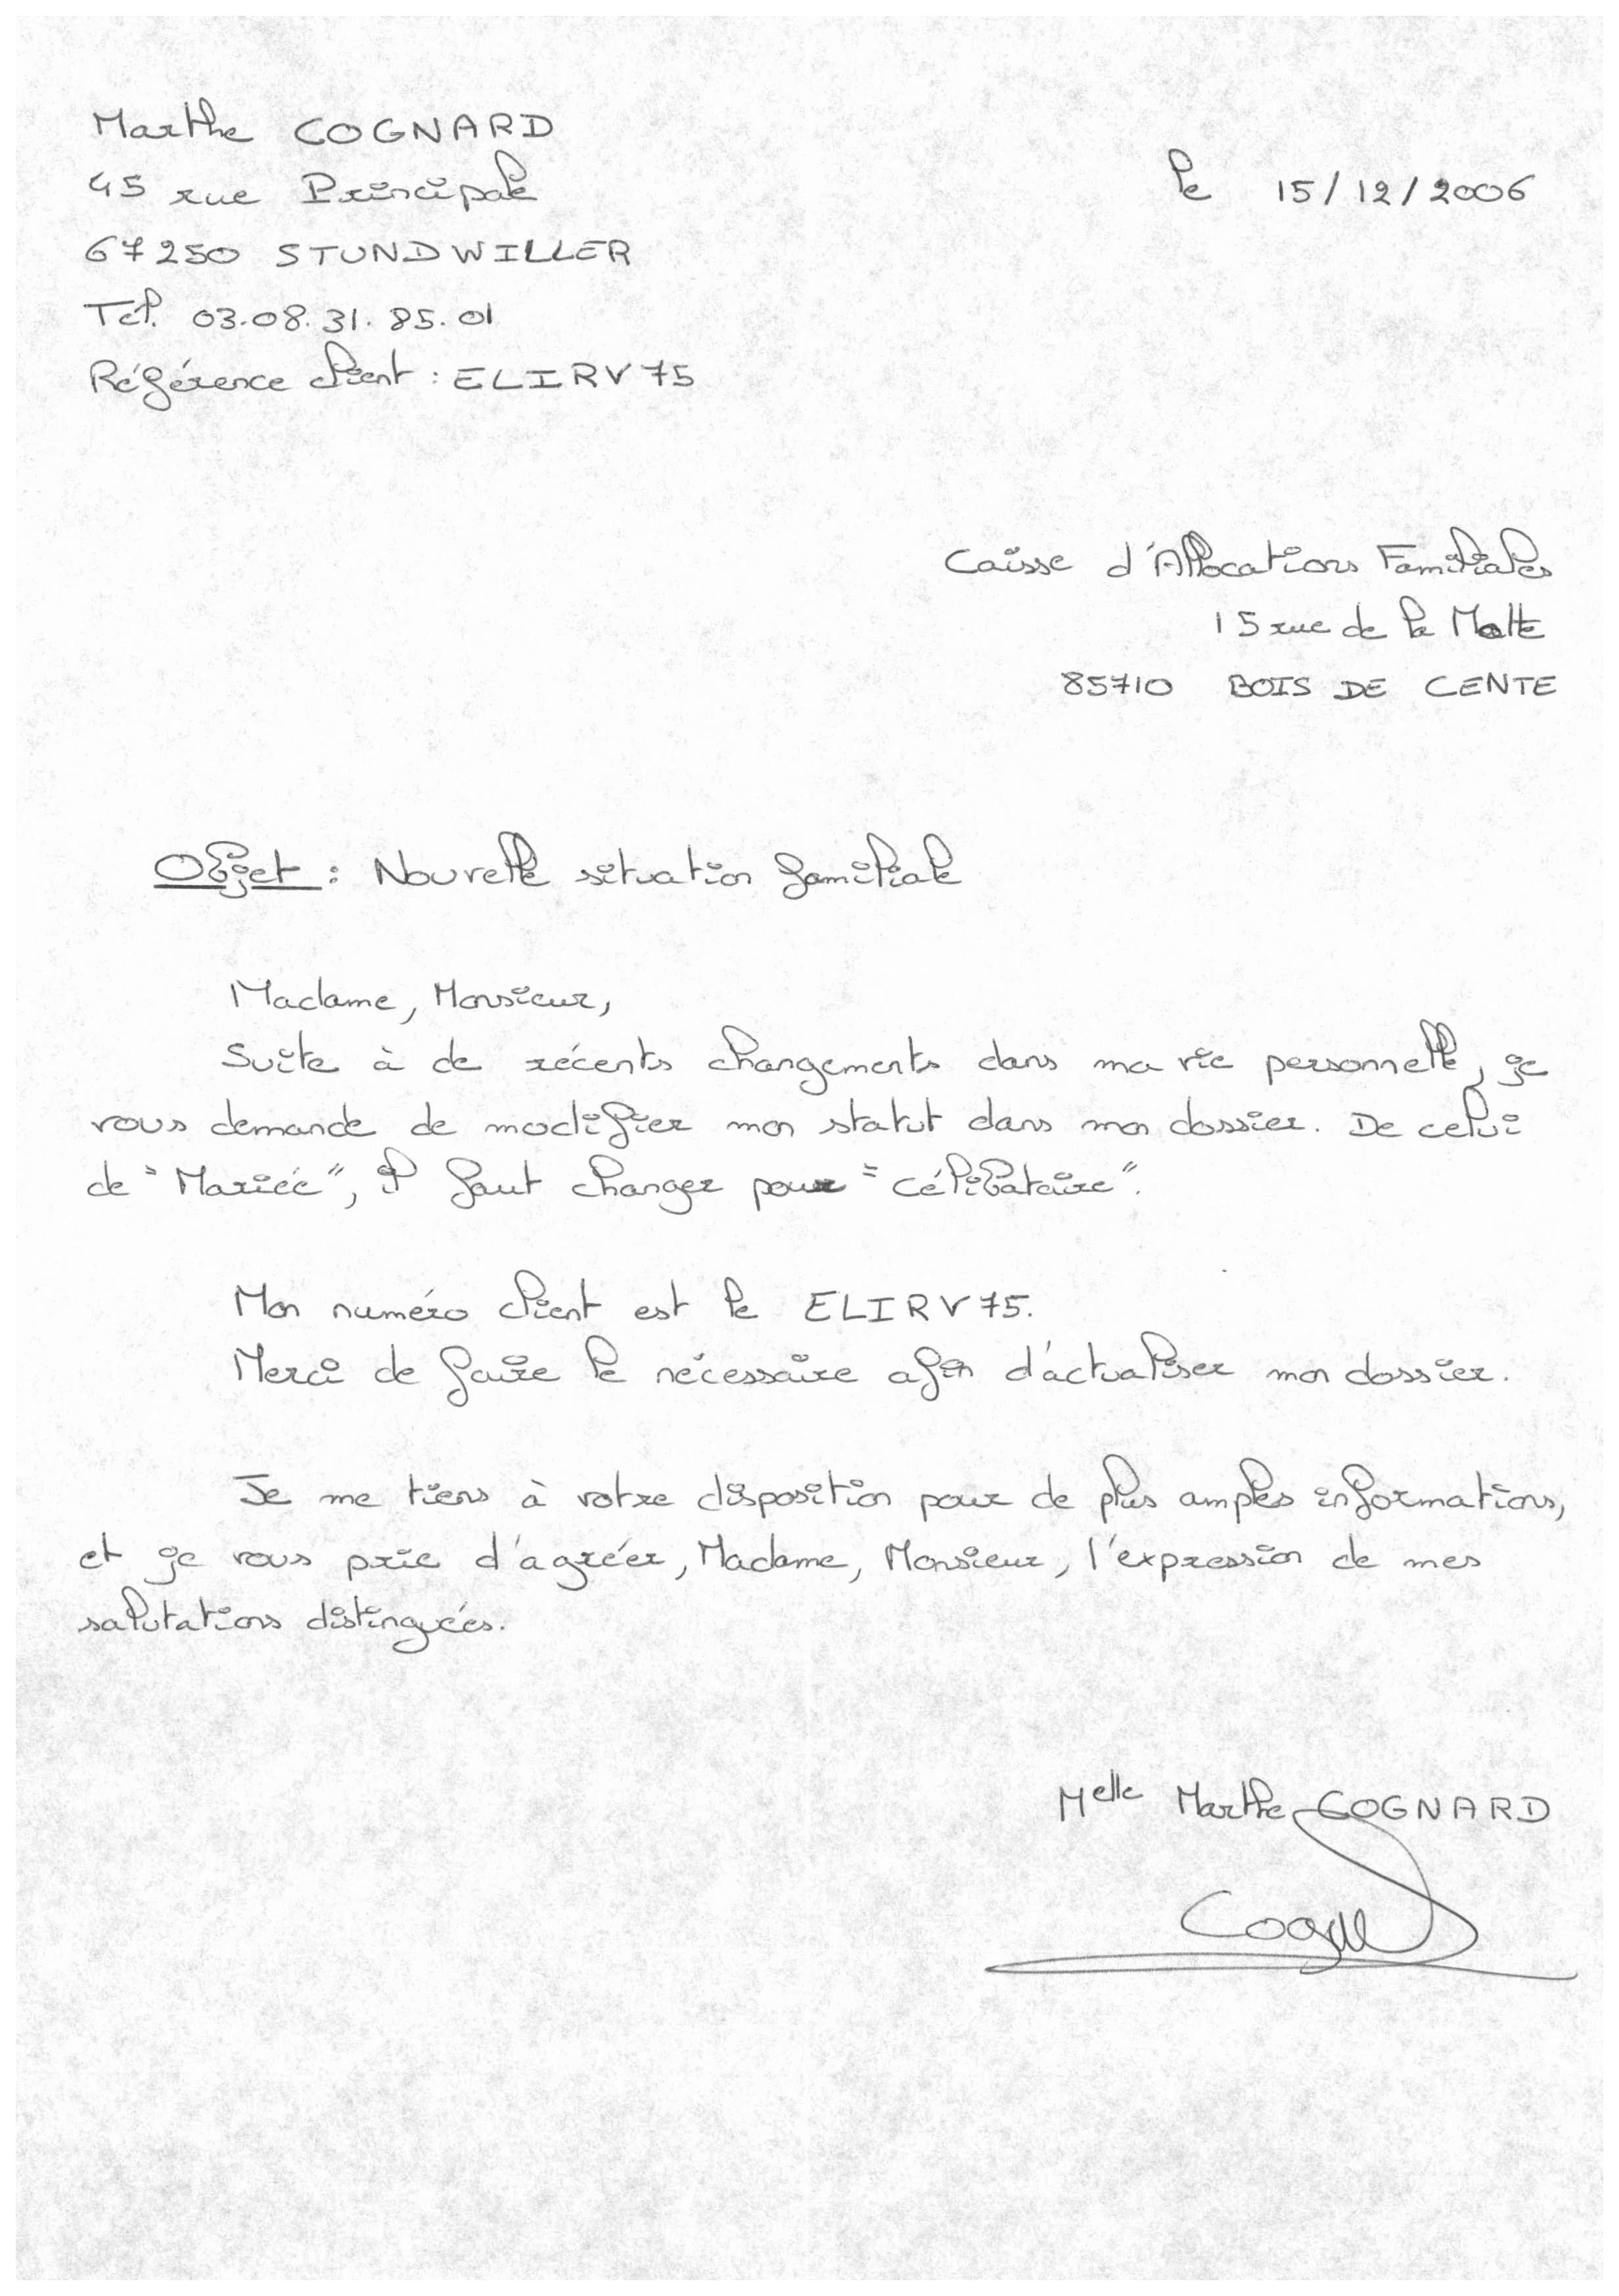 Marthe COGNARD
le 15/12/2006
45 rue Principale
67250 STUNDWILLER
Tel. 03.08.31.85.01
Référence client : ELIRV75
Caisse d'Allocations Familiales
15 rue de la Motte
85710 BOIS DE CENTE
Objet : Nouvelle situation familiale
Madame, Monsieur,
Suite à de récents changements dans ma vie personnelle, je
vous demande de modifier mon statut dans mon dossier. De celui
de "Mariée", il faut changer pour "célibataire".
Mon numéro client est le ELIRV75.
Merci de faire le nécessaire afin d'actualiser mon dossier.
Je me tiens à votre disposition pour de plus amples informations,
et je vous prie d'agréer, Madame, Monsieur, l'expression de mes
salutations distinguées.
Melle Marthe COGNARD